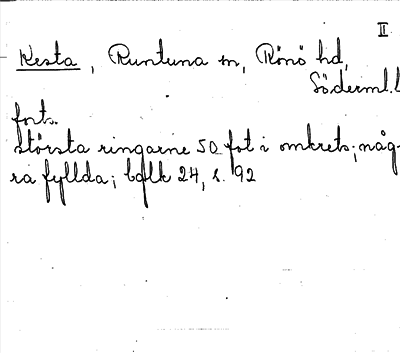 II
Kesta, Runtuna sn, Rönö hd,
Söderml. l
forts.
största ringarne 50 fot i omkrets; någ-
ra fyllda; b 24, s. 92